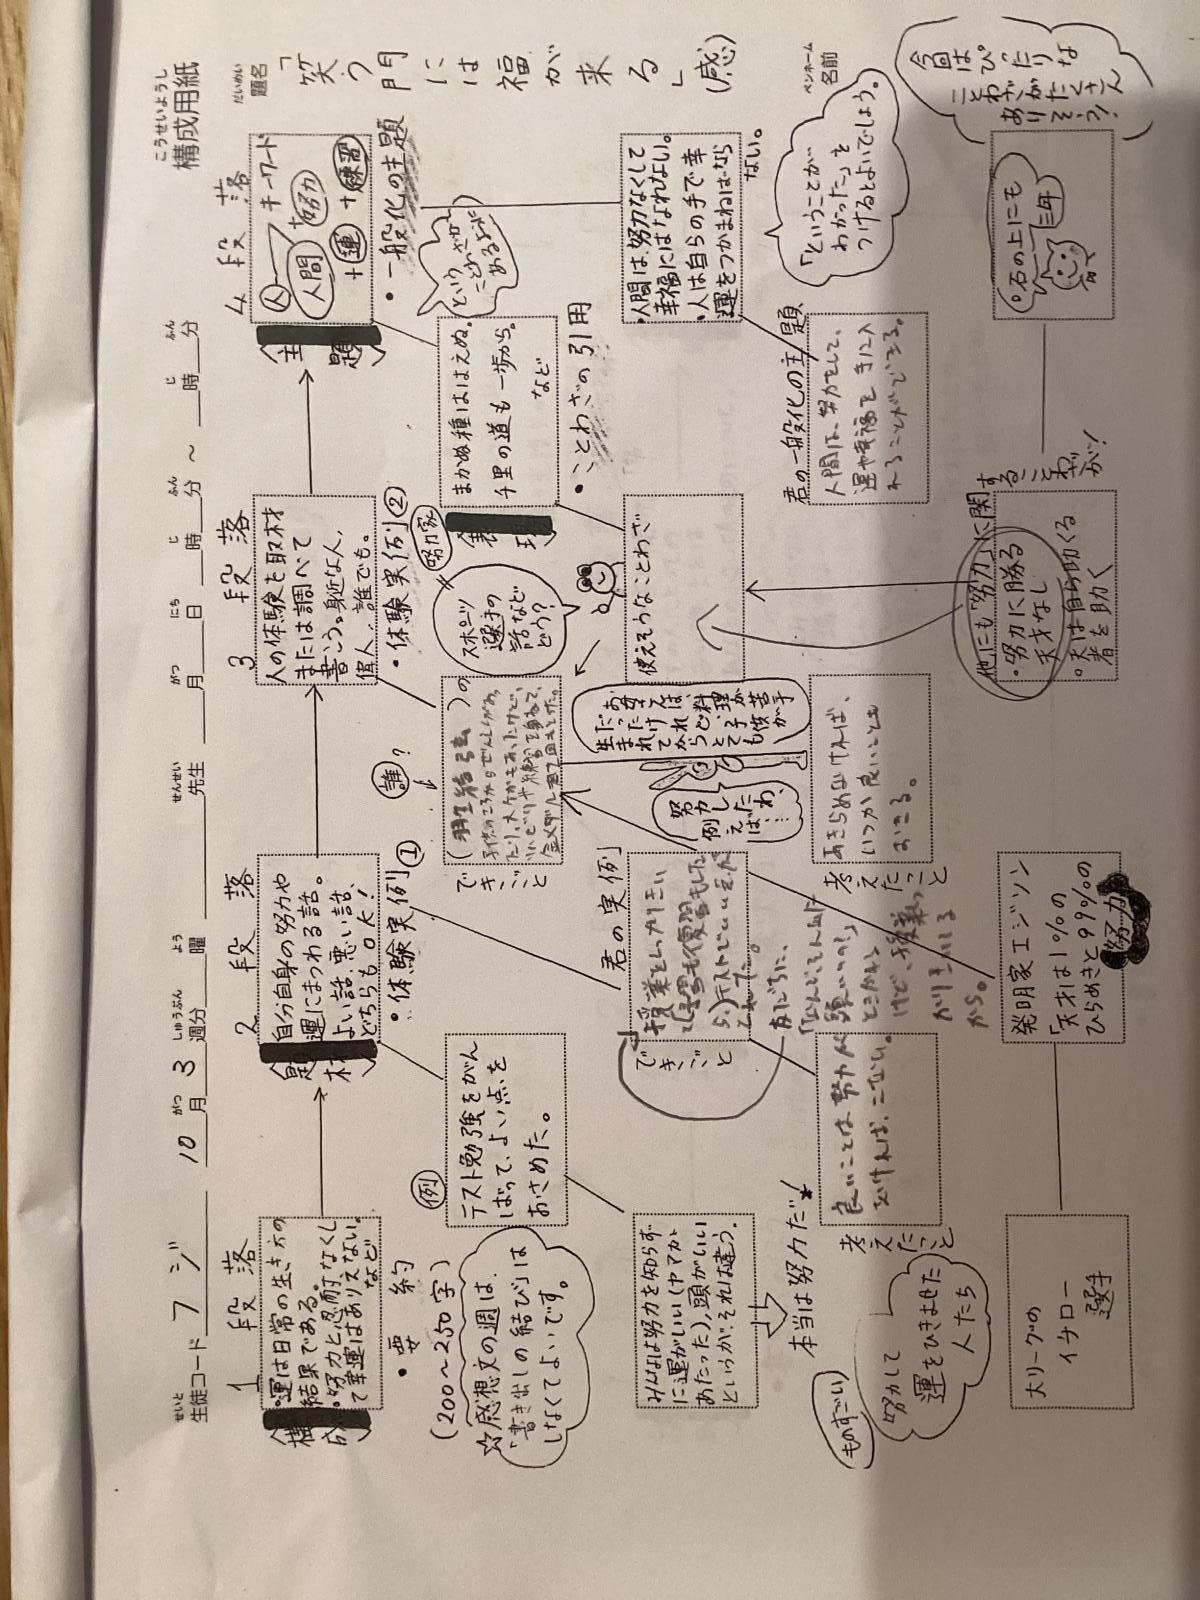 こうせいようし
構成用紙
だいめい
題名
「笑う門には福が来る」(感)
ペンネーム
名前
せいと
生徒コード フジ
10 がつ 月 3 しゅうぶん 週分
よう
曜
せんせい
先生
がつ 月 にち 日 じ 時 ふん 分 ～ じ 時 ふん 分
1段落
構成
・運は日常の生き方の
結果である。
・努力と忍耐なくし
て幸運はありえない。
など
・要約
(200〜250字)
☆感想文の週は、
「書き出しの結び」は
しなくてよいです。
2段落
題材
自分自身の努力や
運にまつわる話。
よい話、悪い話、
どちらもOK!
・体験実例①
例
テスト勉強をがん
ばって、よい点を
おさめた。
みんなは努力を知らず
に運がいい(ヤマが
あたった)、頭がいい
というが、それは違う。
本当は努力だ!
君の実例
できごと
考えたこと
良いことは努力が
なければ、こない。
3段落
人の体験を取材
または調べて
書こう。身近な人、
偉人、誰でも。
・体験実例②
誰?
(羽生結弦)の
できごと
努力家
スポーツ
選手の
話など
どう?
お母さんは、
生まれてから
とても
料理が
苦手
だったけれど、
努力したわ、
例えば、…
考えたこと
あきらめなければ、
いつか良いことも
おきる。
表現
まかぬ種ははえぬ。
千里の道も一歩から。
など
・ことわざの引用
使えそうなことわざ
4段落
主題
キーワード
人
人間
+努力
+運+練習
・一般化の主題
という
ことわざが
あるように
・人間は、努力なくして
幸福にはなれない。
・人は自らの手で幸
運をつかまねばなら
ない。
「ということが
わかった」と
つけるとよいでしょう。
君の一般化の主題
人間は、努力をして、
運や幸福を手に入
れることができる。
今回はぴったりな
ことわざがたくさん
ありそう!
。石の上にも
三年
他にも「努力」に関
することわざが!
・努力に勝る
天才なし
・天は自ら助くる
者を助く
発明家エジソン
「天才は1%の
ひらめきと99%の
努力」
大リーグの
イチロー
選手
ものすごい
努力して
運をひきよせた
人たち